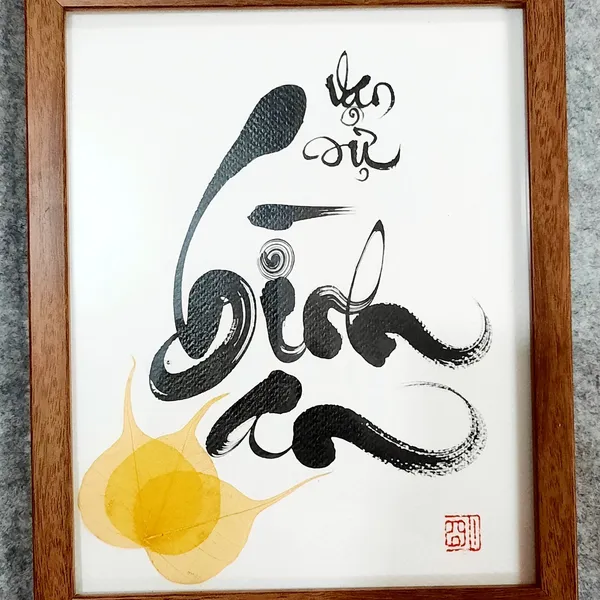 Vạn
sự
bình
an